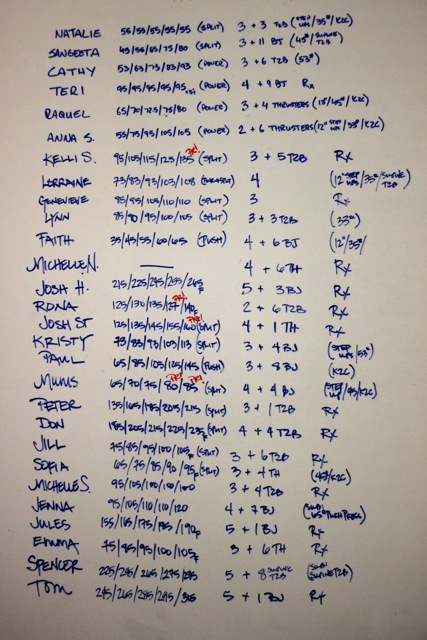 NATALIE 55/55/55/55/55 (SPLIT) 3 + 3 T2B (STEP UPS/35#/K2C)
SANGEETA 45/55/65/75/80 (SPLIT) 3 + 11 BJ (45#/SUPINE T2B)
CATHY 53/63/73/83/93 (POWER) 3 + 6 T2B (53#)
TERI 95/95/95/95/95 (POWER) 4 + 9 BJ Rx
RAQUEL 65/70/725/75/80 (POWER) 3 + 4 THRUSTERS (12"/45#/K2C)
ANNA S. 55/75/95/105/105 (POWER) 2 + 6 THRUSTERS (12" STEP UPS/35#/K2C)
KELLI S. 95/105/115/125/135 PR! (SPLIT) 3 + 5 T2B Rx
LORRAINE 73/83/93/103/108 4 (12" STEP UPS/35#/SUPINE T2B)
GENEVIEVE 95/95/105/110/110 (SPLIT) 3 Rx
LYNN 85/90/95/100/105 (SPLIT) 3 + 3 T2B (33#)
FAITH 35/45/55/60/65 (PUSH) 4 + 6 BJ (12"/35#/
MICHELLE N. — 4 + 6 TH Rx
JOSH H. 215/225/245/255/265F 5 + 3 BJ Rx
RONA 125/130/135/137/140F PR! 2 + 6 T2B Rx
JOSH ST 125/135/145/155/160 PR! (SPLIT) 4 + 1 TH Rx
KRISTY 73/83/93/103/113 (SPLIT) 3 + 4 BJ (STEP UPS/53#)
PAUL 65/85/105/125/145 (PUSH) 3 + 8 BJ (K2C)
MIMIS 65/70/75/80/85 PR! PR! (SPLIT) 4 + 4 BJ (STEP UP/45/K2C)
PETER 135/165/185/205/215 (SPLIT) 3 + 1 T2B Rx
DON 185/205/215/225/235F (SPLIT) 4 + 4 T2B Rx
JILL 75/85/95/100/105F (SPLIT) 3 + 6 T2B Rx
SOFIA 65/75/85/90/95F (SPLIT) 3 + 4 TH (45#/K2C)
MICHELLE S. 95/105/100/100/100 3 + 4 T2B Rx
JENNA 95/105/110/110/120 4 + 7 BJ (SUB: 65# PUSH PRESS)
JULES 155/165/175/185/190F 5 + 1 BJ Rx
EMMA 75/85/95/100/105F 3 + 6 TH Rx
SPENCER 225/245/265/275/285 5 + 8 SUPINE T2B (SUB: SUPINE T2B)
TOM 245/265/285/295/305 5 + 1 BJ Rx